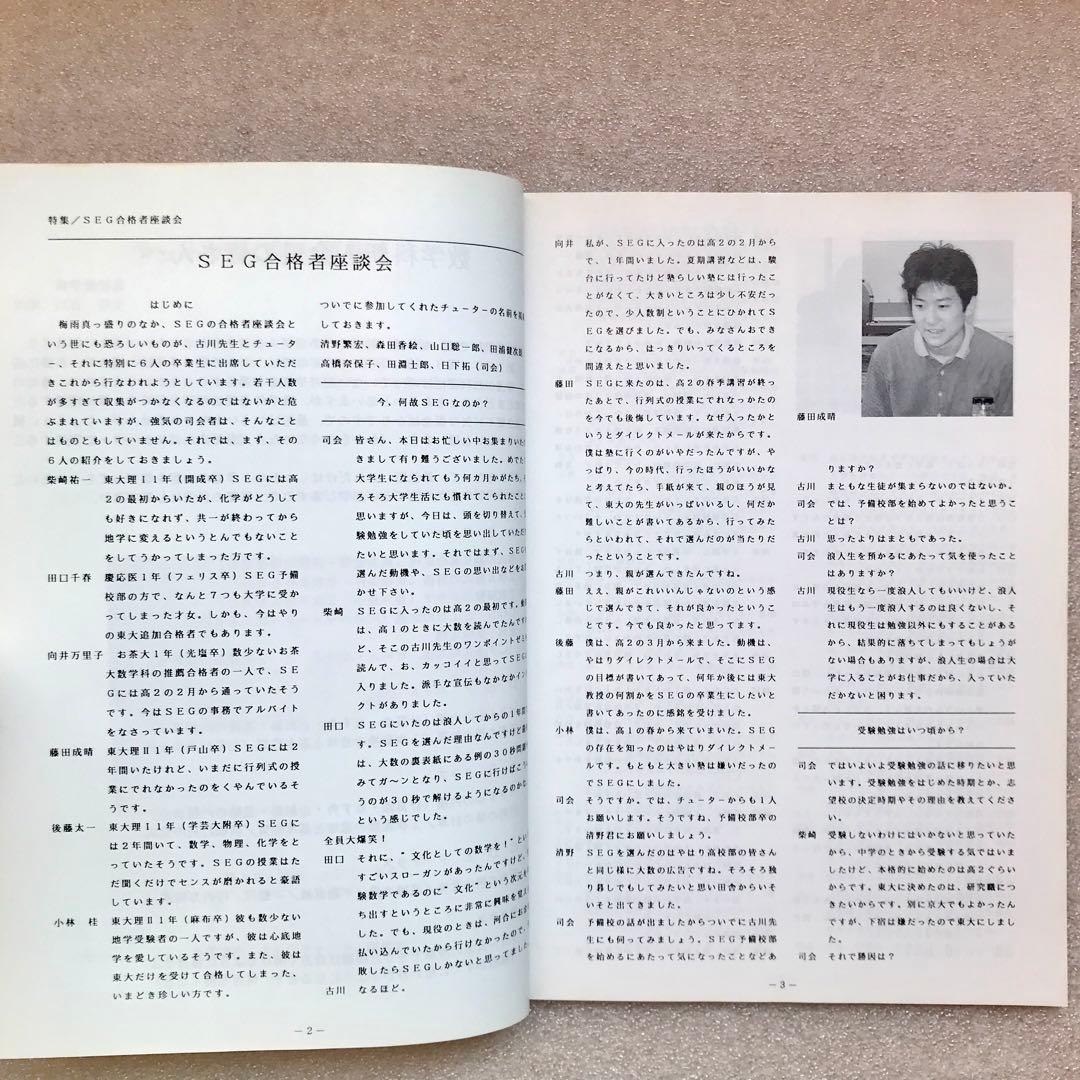 特集／ＳＥＧ合格者座談会
ＳＥＧ合格者座談会
はじめに
梅雨真っ盛りのなか、ＳＥＧの合格者座談会と
いう世にも恐ろしいものが、古川先生とチュータ
ー、それに特別に６人の卒業生に出席していただ
きこれから行なわれようとしています。若干人数
が多すぎて収集がつかなくなるのではないかと危
ぶまれていますが、強気の司会者は、そんなこと
はものともしていません。それでは、まず、その
６人の紹介をしておきましょう。
柴崎祐一 東大理Ⅰ１年（開成卒）ＳＥＧには高
２の最初からいたが、化学がどうして
も好きになれず、共一が終わってから
地学に変えるというとんでもないこと
をしてうかってしまった方です。
田口千春 慶応医１年（フェリス卒）ＳＥＧ予備
校部の方で、なんと７つも大学に受か
ってしまった才女。しかも、今はやり
の東大追加合格者でもあります。
向井万里子 お茶大１年（光塩卒）数少ないお茶
大数学科の推薦合格者の一人で、ＳＥ
Ｇには高２の２月から通っていたそう
です。今はＳＥＧの事務でアルバイト
をなさっています。
藤田成晴 東大理Ⅱ１年（戸山卒）ＳＥＧには２
年間いたけれど、いまだに行列式の授
業にでれなかったのをくやんでいるそ
うです。
後藤太一 東大理Ⅰ１年（学芸大附卒）ＳＥＧに
は２年間いて、数学、物理、化学をと
っていたそうです。ＳＥＧの授業はた
だ聞くだけでセンスが磨かれると豪語
しています。
小林 桂 東大理Ⅱ１年（麻布卒）彼も数少ない
地学受験者の一人ですが、彼は心底地
学を愛しているそうです。また、彼は
東大だけを受けて合格してしまった、
いまどき珍しい方です。
ついでに参加してくれたチューターの名前を
しておきます。
清野繁宏、森田香絵、山口聡一郎、田浦健次朗
高橋奈保子、田淵士郎、日下拓（司会）
今、何故ＳＥＧなのか？
司会 皆さん、本日はお忙しい中お集まりいた
きまして有り難うございました。めでた
大学生になられてもう何カ月かがたち、
ろそろ大学生活にも慣れてこられたこと
思いますが、今日は、頭を切り替えて、
験勉強をしていた頃を思い出していただ
たいと思います。それではまず、ＳＥＧ
選んだ動機や、ＳＥＧの思い出などをお
かせ下さい。
柴崎 ＳＥＧに入ったのは高２の最初です。
は、高１のときに大数を読んでたんです
ど、そこの古川先生のワンポイントゼミ
読んで、お、カッコイイと思ってＳＥＧ
入りました。派手な宣伝もなかなかイン
クトがありました。
田口 ＳＥＧにいたのは浪人してからの１年間
す。ＳＥＧを選んだ理由なんですけど
は、大数の裏表紙にある例の３０秒問題
みてガ〜ンとなり、ＳＥＧに行けばこ
うのが３０秒で解けるようになるのかな
という感じでした。
全員大爆笑！
田口 それに、“文化としての数学を！”とい
すごいスローガンがあったんですけど、
験数学であるのに“文化”という次元を
ち出すというところに非常に興味を覚え
した。でも、現役のときは、河合にお金
払い込んでいたから行けなかったので、
敗したらＳＥＧしかないと思ってました
古川 なるほど。
－２－
向井 私が、ＳＥＧに入ったのは高２の２月から
で、１年間いました。夏期講習などは、駿
台に行ってたけど塾らしい塾には行ったこ
とがなくて、大きいところは少し不安だっ
たので、少人数制ということにひかれてＳ
ＥＧを選びました。でも、みなさんおでき
になるから、はっきりいってくるところを
間違えたと思いました。
藤田 ＳＥＧに来たのは、高２の春季講習が終っ
たあとで、行列式の授業にでれなっかたの
を今でも後悔しています。なぜ入ったかと
いうとダイレクトメールが来たからです。
僕は塾に行くのがいやだったんですが、や
っぱり、今の時代、行ったほうがいいかな
と考えてたら、手紙が来て、親のほうが見
て、東大の先生がいっぱいいるし、何だか
難しいことが書いてあるから、行ってみた
らといわれて、それで選んだのが当りだ
ったということです。
古川 つまり、親が選んできたんですね。
藤田 ええ、親がこれいいんじゃないのという感
じで選んできて、それが良かったというこ
とです。今でも良かったと思ってます。
後藤 僕は、高２の３月から来ました。動機は、
やはりダイレクトメールで、そこにＳＥＧ
の目標が書いてあって、何年か後には東大
教授の何割かをＳＥＧの卒業生にしたいと
書いてあったのに感銘を受けました。
小林 僕は、高１の春から来ていまいた。ＳＥＧ
の存在を知ったのはやはりダイレクトメー
ルです。もともと大きい塾は嫌いだったの
でＳＥＧにしました。
司会 そうですか。では、チューターからも１人
お願いします。そうですね、予備校部卒の
清野君にお願いしましょう。
清野 ＳＥＧを選んだのはやはり高校部の皆さん
と同じ様に大数の広告ですね。そろそろ独
り暮しでもしてみたいと思い田舎からいそ
いそと出てきました。
司会 予備校の話が出ましたからついでに古川先
生にも伺ってみましょう。ＳＥＧ予備校部
を始めるにあたって気になったことなどあ
藤田成晴
りますか？
古川 まともな生徒が集まらないのではないか。
司会 では、予備校部を始めてよかったと思うこ
とは？
古川 思ったよりはまともであった。
司会 浪人生を預かるにあたって気を使ったこと
はありますか？
古川 現役生なら一度浪人してもいいけど、浪人
生はもう一度浪人するのは良くないし、そ
れに現役生は勉強以外にもすることがある
から、結果的に落ちてしまってもしょうが
ない場合もありますが、浪人生の場合は大
学に入ることがお仕事だから、入っていた
だかないと困ります。
受験勉強はいつ頃から？
司会 ではいよいよ受験勉強の話に移りたいと思
います。受験勉強をはじめた時期とか、志
望校の決定時期やその理由を教えてくださ
い。
柴崎 受験しないわけにはいかないと思っていた
から、中学のときから受験する気ではいま
したけど、本格的に始めたのは高２ぐらい
からです。東大に決めたのは、研究職につ
きたいからです。別に京大でもよかったん
ですが、下宿は嫌だったので東大にしまし
た。
司会 それで勝因は？
－３－